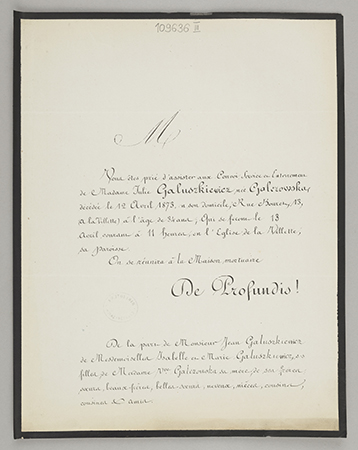 109636 II
M
Vous êtes prié d'assister aux Convoi Service et Enterrement
de Madame Julie Galuszkiewicz née Galczowska,
décédée le 12 Avril 1873, à son domicile, Rue 13,
(à la Villette) à l'âge de 34 ans, Qui se feront le 13
Avril courant à 11 heures, en l'Eglise de la Villette,
sa paroisse.
On se réunira à la Maison mortuaire
De Profundis!
De la part de Monsieur Jean Galuszkiewicz
de Mesdemoiselles Isabelle et Marie Galuszkiewicz, ses
filles de Madame Vve Galczowska sa mère de ses frères
sœurs, beaux-frères, belles-sœurs, neveux, nièces, cousins,
cousines & amis.